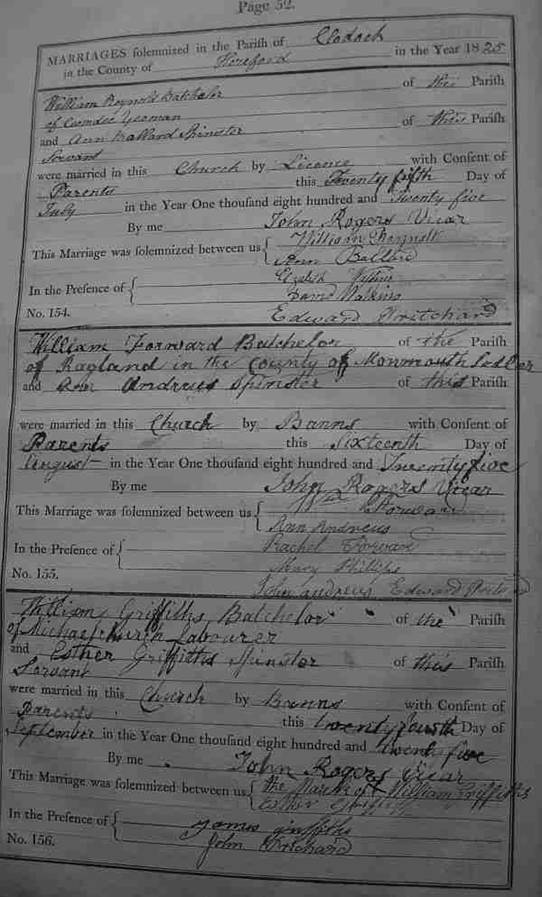 Page 52.
MARRIAGES solemnized in the Parish of Clodoch
in the County of Hereford in the Year 1825
William Reynold Batchelor of this Parish
of Coomdee Yeoman
and Ann Ballard Spinster of this Parish
Servant
were married in this Church by Licence with Consent of
Parents this Twenty fifth Day of
July in the Year One thousand eight hundred and Twenty five
By me John Rogers Vicar
This Marriage was solemnized between us William
Ann Ballard
In the Presence of
David Watkins
No. 154. Edward Pritchard
William Forward Batchelor of the Parish
of Ragland in the County of Monmouth
and Ann Andrews Spinster of this Parish
were married in this Church by Banns with Consent of
Parents this Sixteenth Day of
August in the Year One thousand eight hundred and Twenty five
By me John Rogers Vicar
This Marriage was solemnized between us Wm Forward
Ann Andrews
In the Presence of Rachel Forward
Mary Phillips
No. 155. John Andrews Edward
William Griffiths Batchelor of the Parish
of Michaelchurch Labourer
and Esther Griffiths Spinster of this Parish
Servant
were married in this Church by Banns with Consent of
Parents this twenty fourth Day of
September in the Year One thousand eight hundred and twenty five
By me John Rogers Vicar
This Marriage was solemnized between us the Mark of William Griffiths
Esther Griffiths
In the Presence of James Griffiths
No. 156. John Pritchard